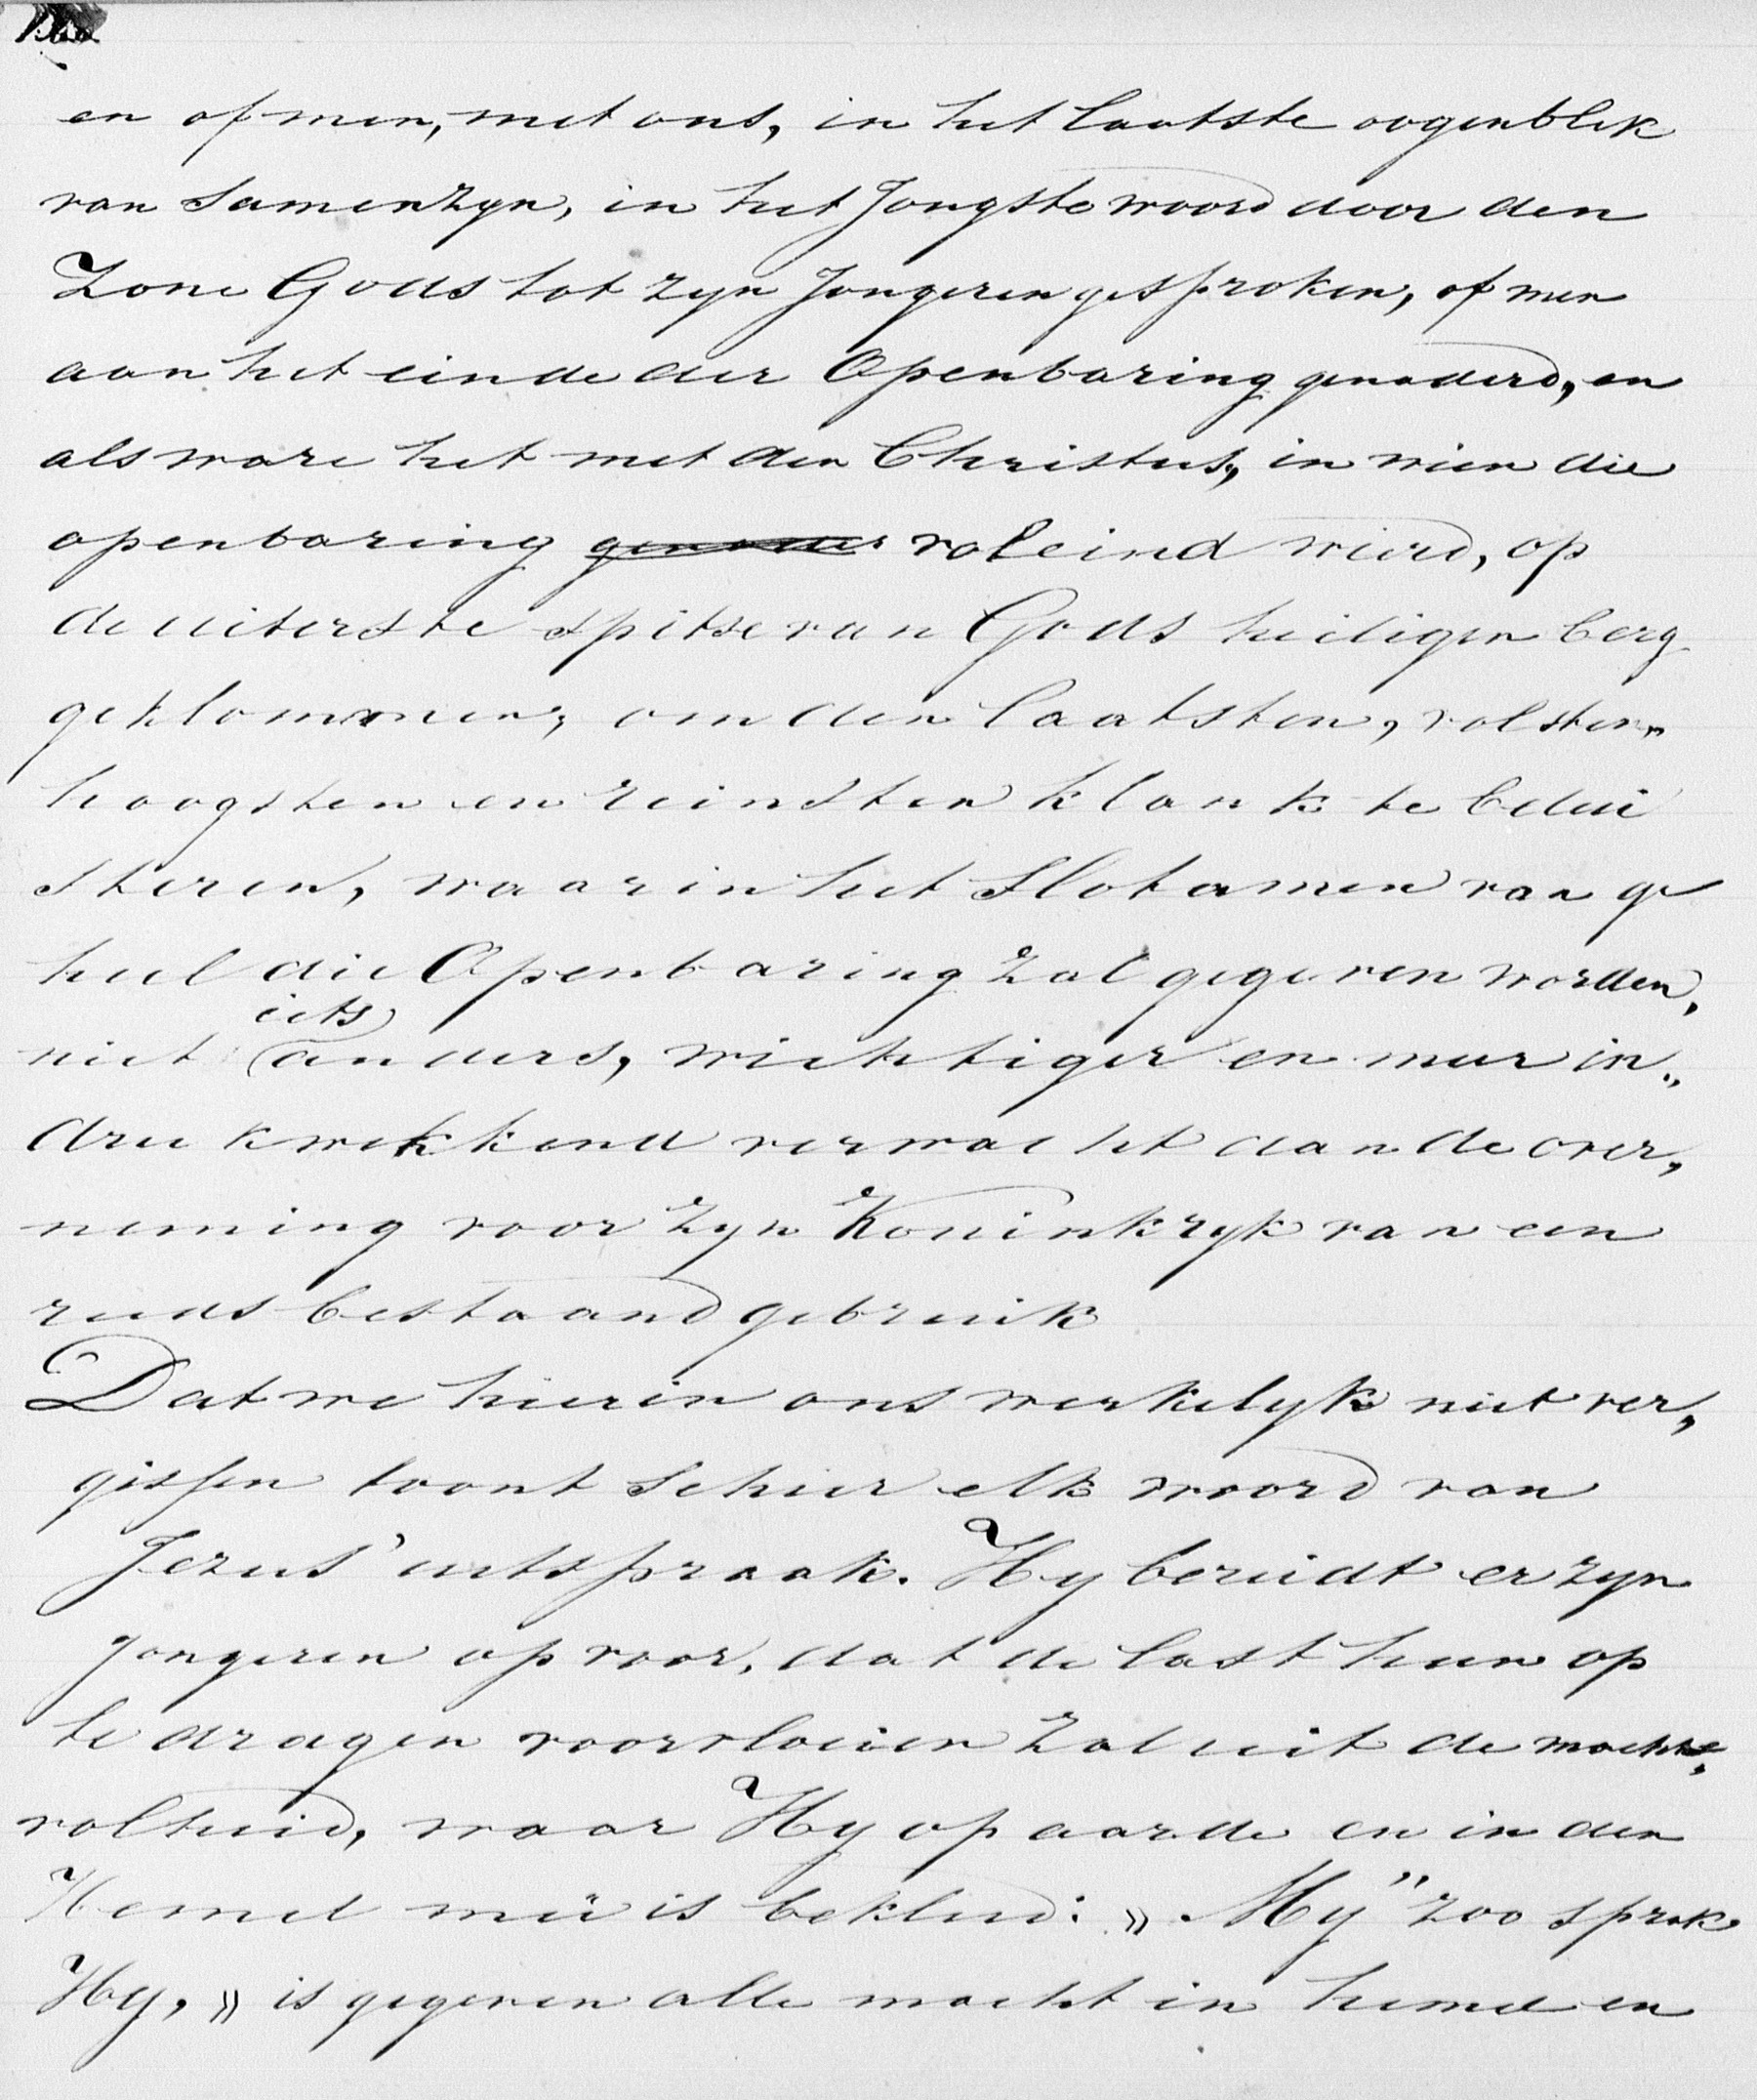 en of men, met ons, in het laatste oogenblik
van Samenzyn, in het Jongste woord door den
Zone Gods tot zyn Jongeren gesproken, of men
aan het einde der Openbaring genaderd, en
als ware het met den Christus, in wien die
openbaring voleind wierd, op
de uiterste spitse van Gods heiligen berg
geklommen, om den laatsten, volsten,
hoogsten en reinsten klank te belui
steren, waarin het Slotamen van ge
heel die Openbaring zal gegeven worden,
niet iets anders, wichtiger en meer in„
drukwekkend verwacht dan de over„
neming voor zyn Koninkryk van een
reeds bestaand gebruik
Dat we hierin ons werkelyk niet ver„
gissen toont Schier elk woord van
Jezus' uitspraak. Hy bereidt er zyn
Jongeren op voor, dat de last hun op
te dragen voortvloeien zal uit de macht„
volheid, waar Hy op aarde en in den
Hemel meê is bekleed: „ My" zoo sprak
Hy, „ is gegeven alle macht in hemel en